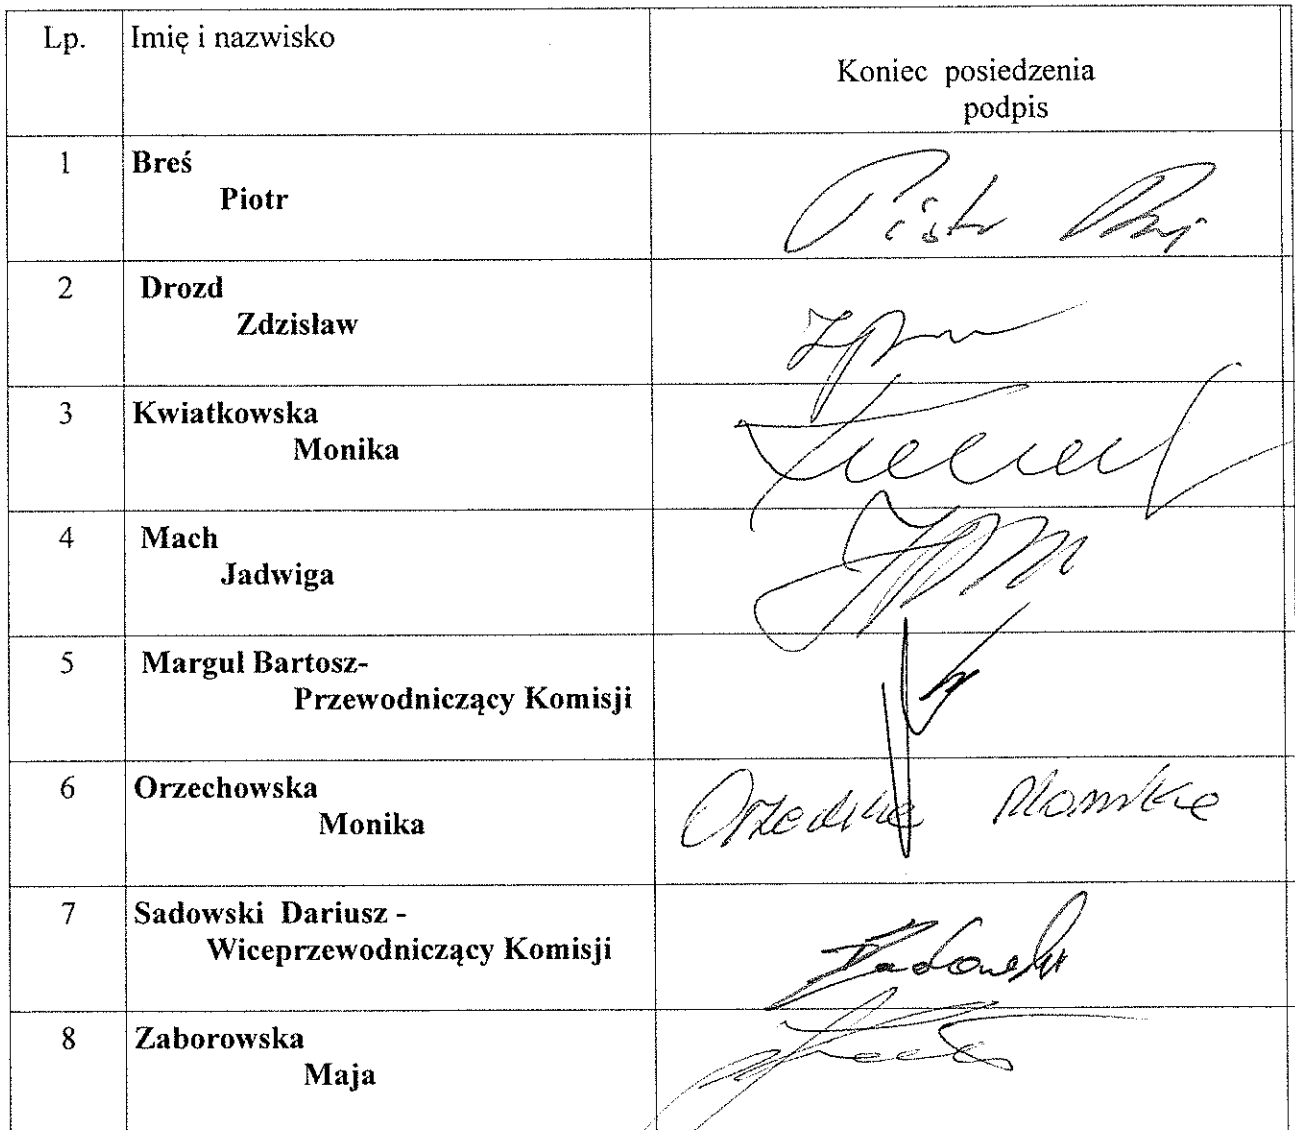 Lp. Imię i nazwisko
Koniec posiedzenia
podpis
1 Breś
Piotr
Piotr
2 Drozd
Zdzisław
3 Kwiatkowska
Monika
4 Mach
Jadwiga
5 Margul Bartosz-
Przewodniczący Komisji
6 Orzechowska
Monika
Monika
7 Sadowski Dariusz -
Wiceprzewodniczący Komisji
Sadowski
8 Zaborowska
Maja